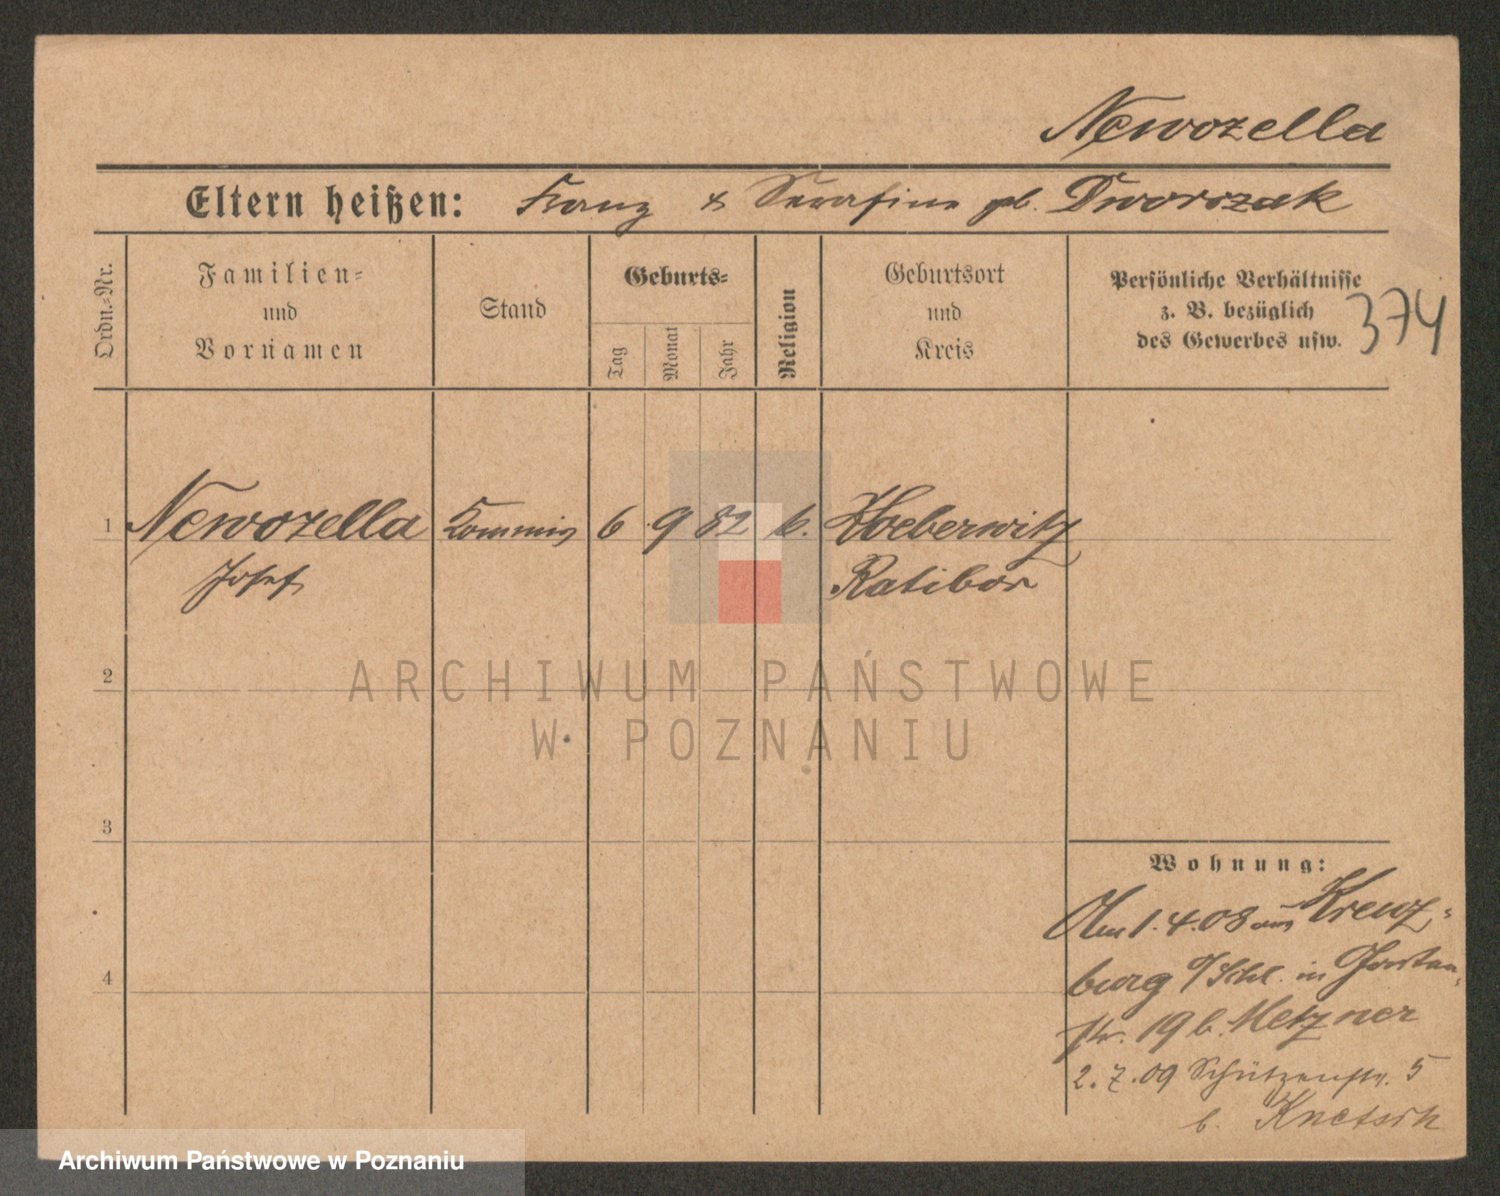 Newozella
Eltern heißen: Franz & Serafine gb. Dworczak
Ordn.-Nr.
Familien-
und
Vornamen
Stand
Geburts-
Tag
Monat
Jahr
Religion
Geburtsort
und
Kreis
Persönliche Verhältnisse
z. B. bezüglich
des Gewerbes usw.
374
1 Newozella Kommis 6 9 82 k. Hoeberwitz
Josef Ratibor
2
ARCHIWUM PAŃSTWOWE
W POZNANIU
3
Wohnung:
Am 1.4.08 aus Kreuz-
burg O/Schl. in
str. 19 b. Metzner
2.7.09 Schützenstr. 5
b.
4
Archiwum Państwowe w Poznaniu